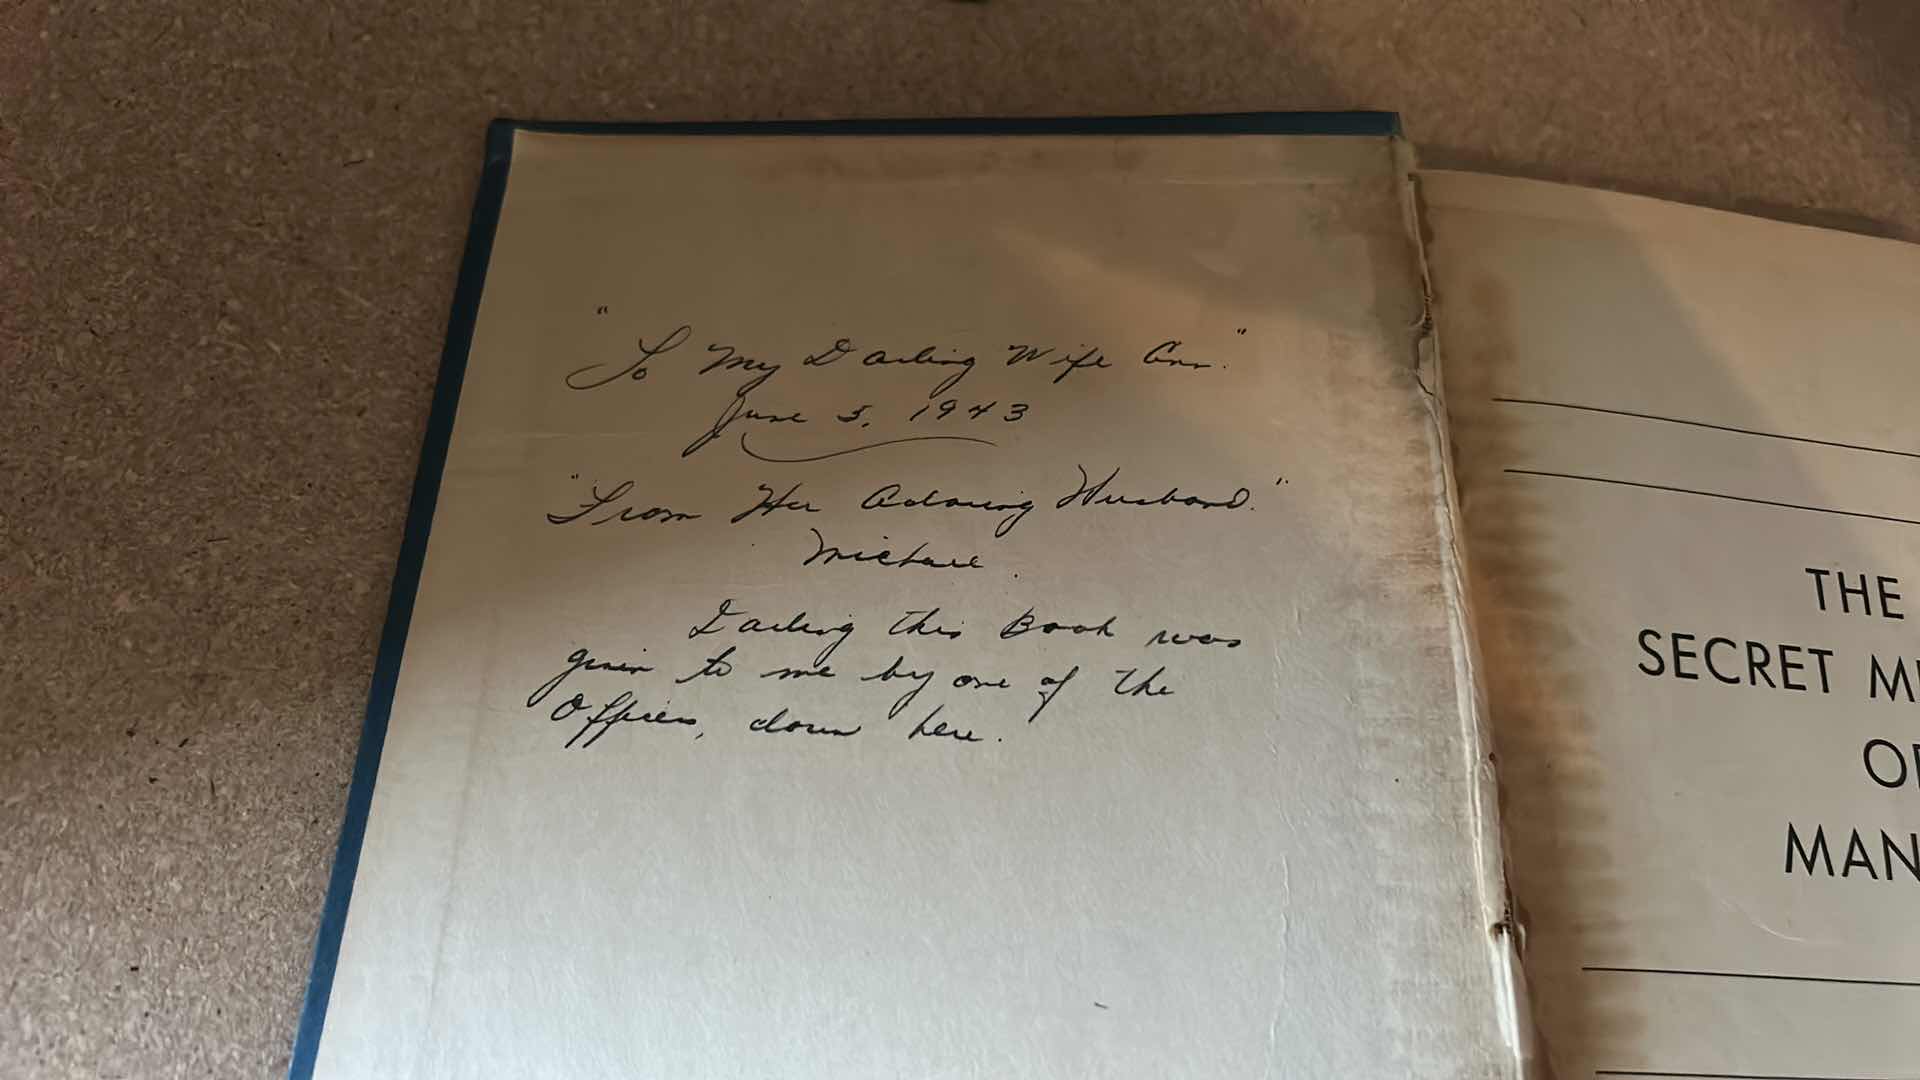 "To My Darling Wife Ann."
June 5, 1943
"From Her Adoring Husband."
Michael.
Darling this Book was
given to me by one of the
Officers, down here.
THE
SECRET
MAN